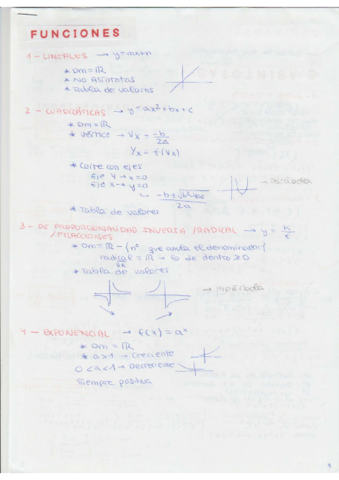 FUNCIONES
1 - LINEALES → y = mx+n
* Dm = ℝ
* No Asíntotas
* Tabla de valores
2 - CUADRÁTICAS → y = ax² + bx + c
* Dm = ℝ
* Vértice → Vx = -b/2a
Yx = f(Vx)
* Corte con ejes
Eje Y → x = 0
Eje X → y = 0
* Tabla de valores
3 - DE PROPORCIONALIDAD INVERSA /RADICAL → y = K/x
/FRACCIONES
* Dm = ℝ - {nº que anula el denominador}
radical = ℝ → lo de dentro ≥ 0
* Tabla de valores
4 - EXPONENCIAL → f(x) = aˣ
* Dm = ℝ
* a>1 → Creciente
0<a<1 → Decreciente
Siempre positiva